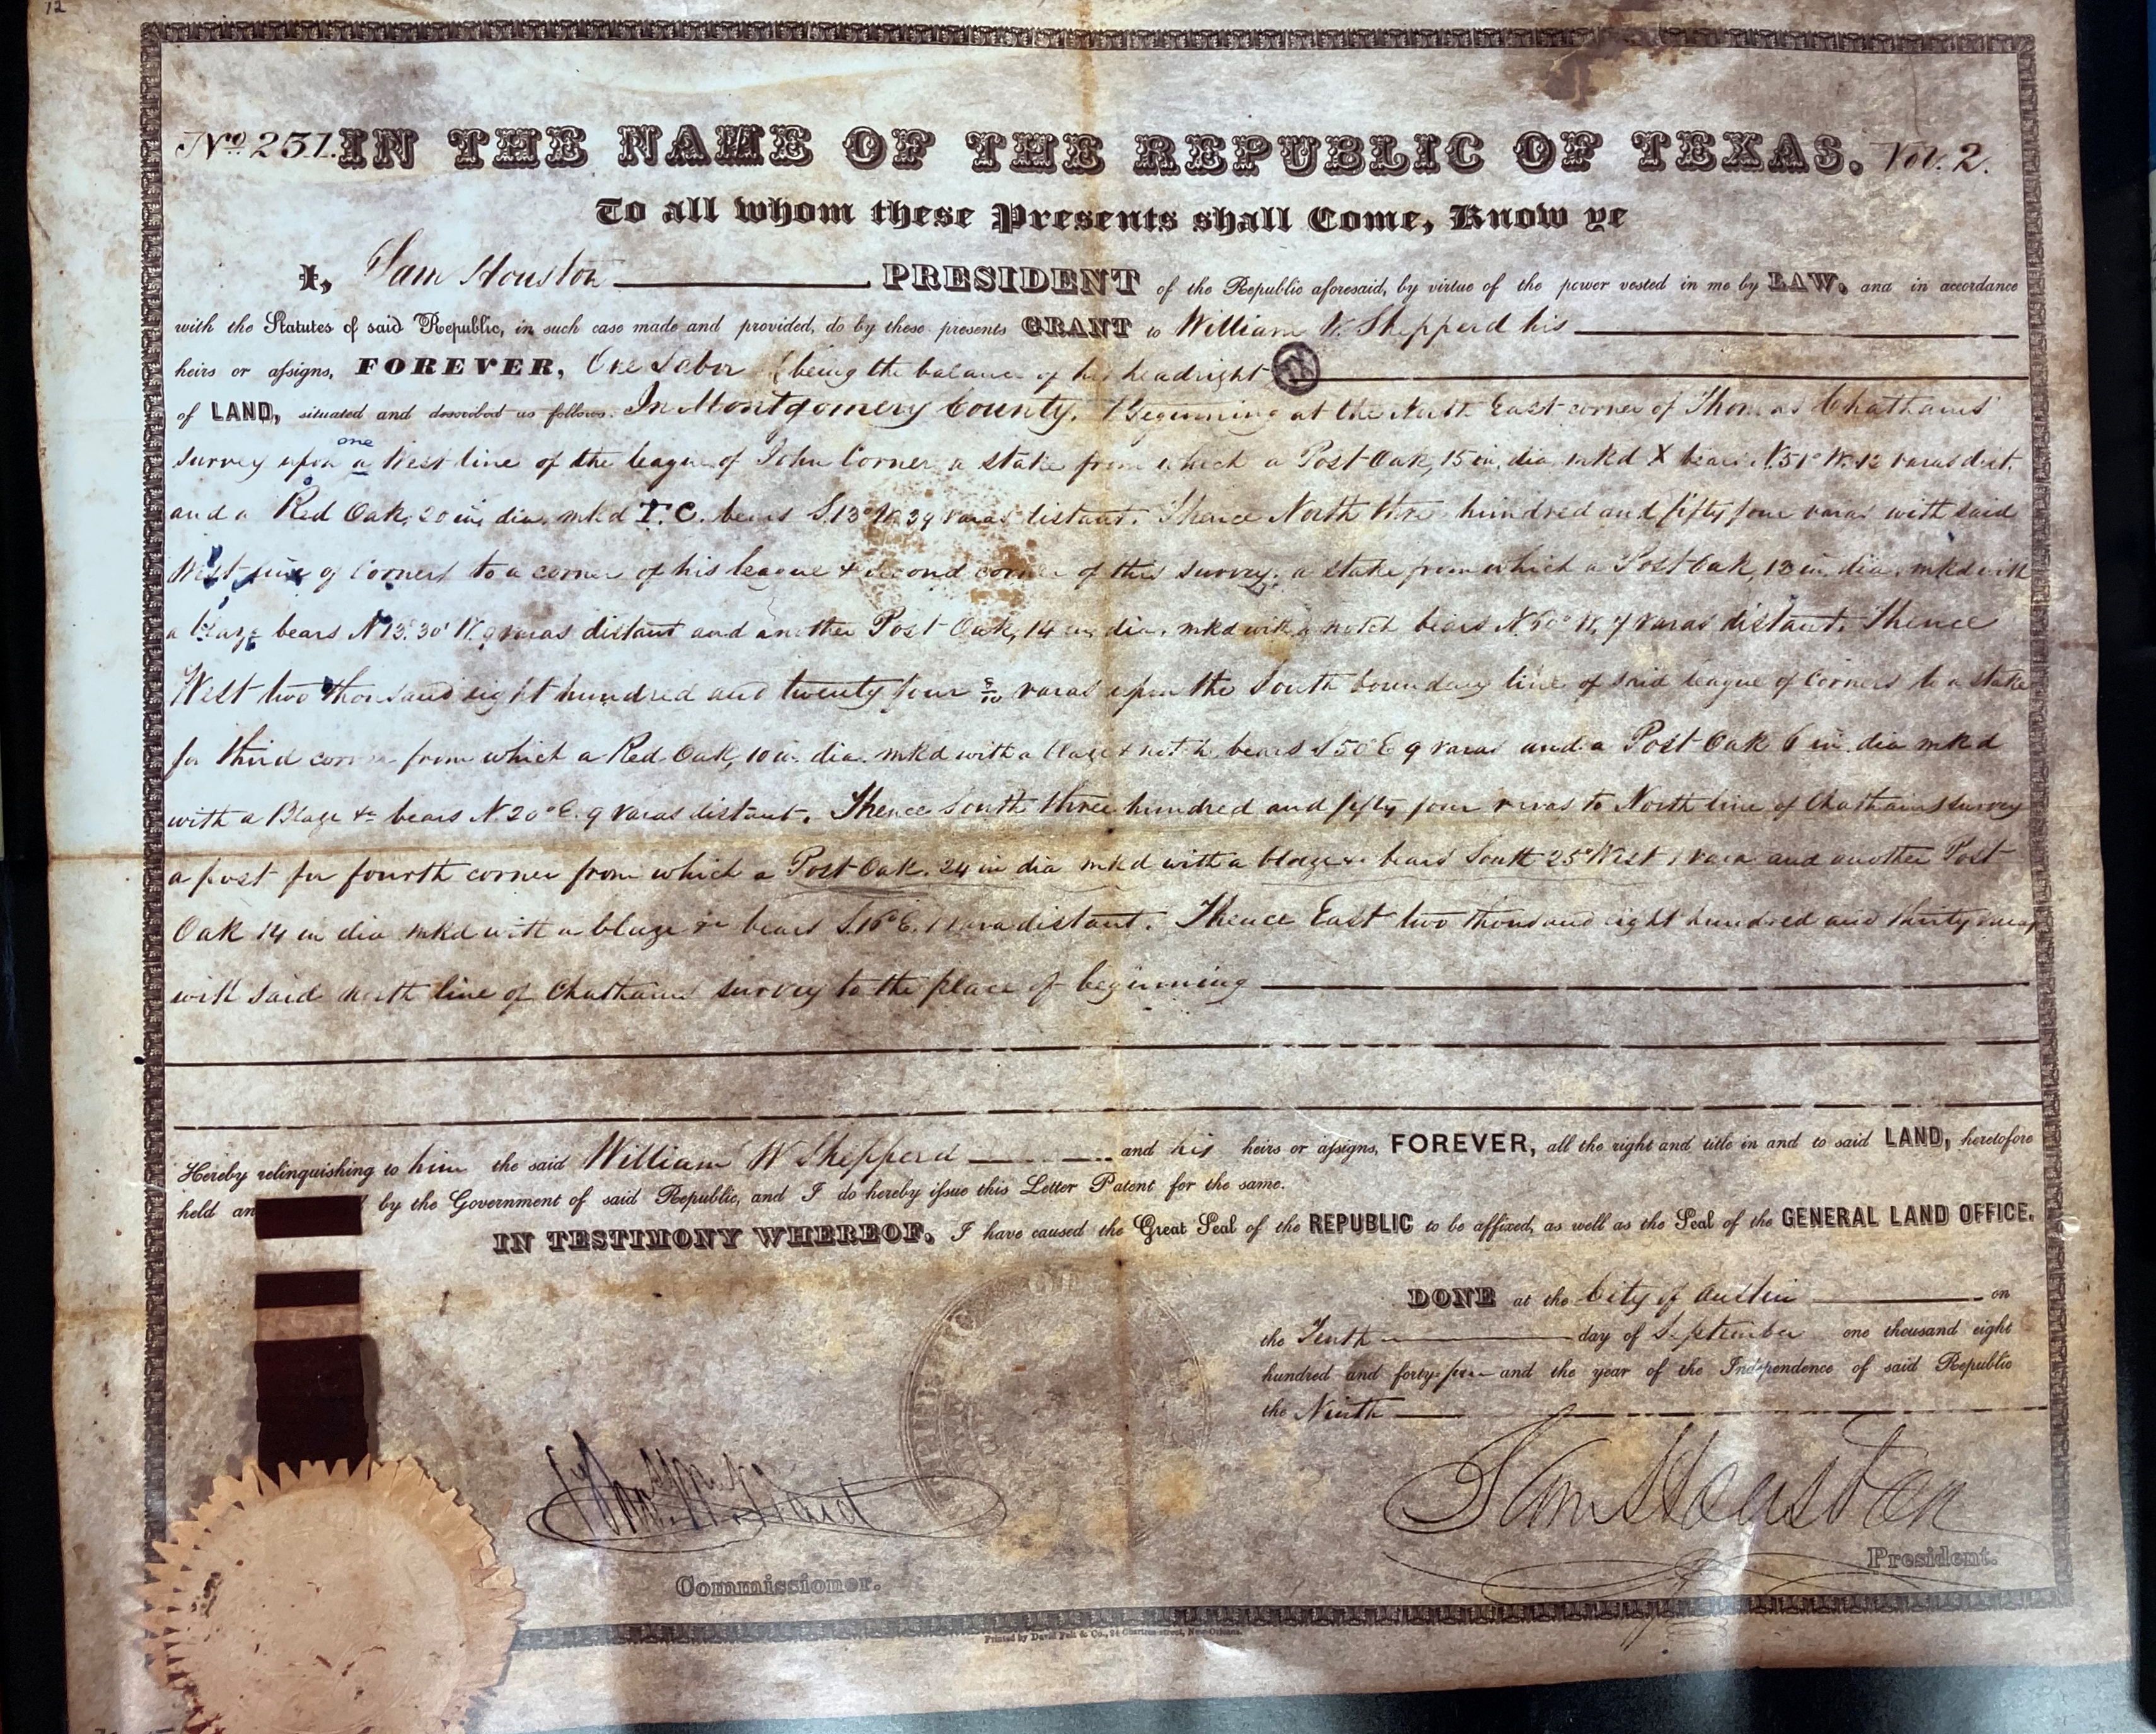 12
No. 231. IN THE NAME OF THE REPUBLIC OF TEXAS. Vol. 2.
To all whom these Presents shall Come, Know ye
I, Sam Houston PRESIDENT of the Republic aforesaid, by virtue of the power vested in me by LAW, and in accordance
with the Statutes of said Republic, in such case made and provided, do by these presents GRANT to William W. Shepperd his
heirs or assigns, FOREVER, One Labor (being the balance of his headright)
of LAND, situated and described as follows. In Montgomery County. Beginning at the North East corner of Thomas Chathams
one
survey upon a West line of the league of John Corner, a stake from which a Post Oak, 15 in, dia, mkd X bears N.51° W. 12 varas dist.
and a Red Oak, 20 in, dia, mkd T.C. bears S.13° W. 39 varas distant. Thence North three hundred and fifty four varas with said
West line of Corners to a corner of his league & second corner of this survey, a stake from which a Post Oak, 13 in. dia. mkd with
a blaze bears N 13° 30' W. 9 varas distant and another Post Oak, 14 in, dia. mkd with a notch bears N.60° W, 7 varas distant. Thence
West two thousand eight hundred and twenty four 8/10 varas upon the South boundary line of said league of Corners to a stake
for third corner from which a Red Oak, 10 in. dia. mkd with a blaze & notch bears S 50° E 9 varas and a Post Oak 6 in dia mkd
with a Blaze &c bears N 20° E. 9 varas distant. Thence South three hundred and fifty four varas to North line of Chathams survey
a post for fourth corner from which a Post Oak. 24 in dia mkd with a blaze &c bears South 25° West 1 vara and another Post
Oak 14 in dia mkd with a blaze &c bears S.16° E. 1 vara distant. Thence East two thousand eight hundred and thirty varas
with said north line of Chathams survey to the place of beginning
Hereby relinquishing to him the said William W Shepperd and his heirs or assigns, FOREVER, all the right and title in and to said LAND, heretofore
held an by the Government of said Republic, and I do hereby issue this Letter Patent for the same.
IN TESTIMONY WHEREOF, I have caused the Great Seal of the REPUBLIC to be affixed, as well as the Seal of the GENERAL LAND OFFICE.
DONE at the City of Austin on
the Tenth day of September one thousand eight
hundred and forty-four and the year of the Independence of said Republic
the Ninth
Sam Houston
President.
Commissioner.
Printed by David Felt & Co., 24 Chartres street, New-Orleans.